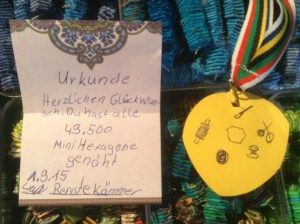 Urkunde
Herzlichen Glückwun-
sch, Du hast alle
49.500
Mini Hexagone
genäht
1.9.15
Renate Kämmer